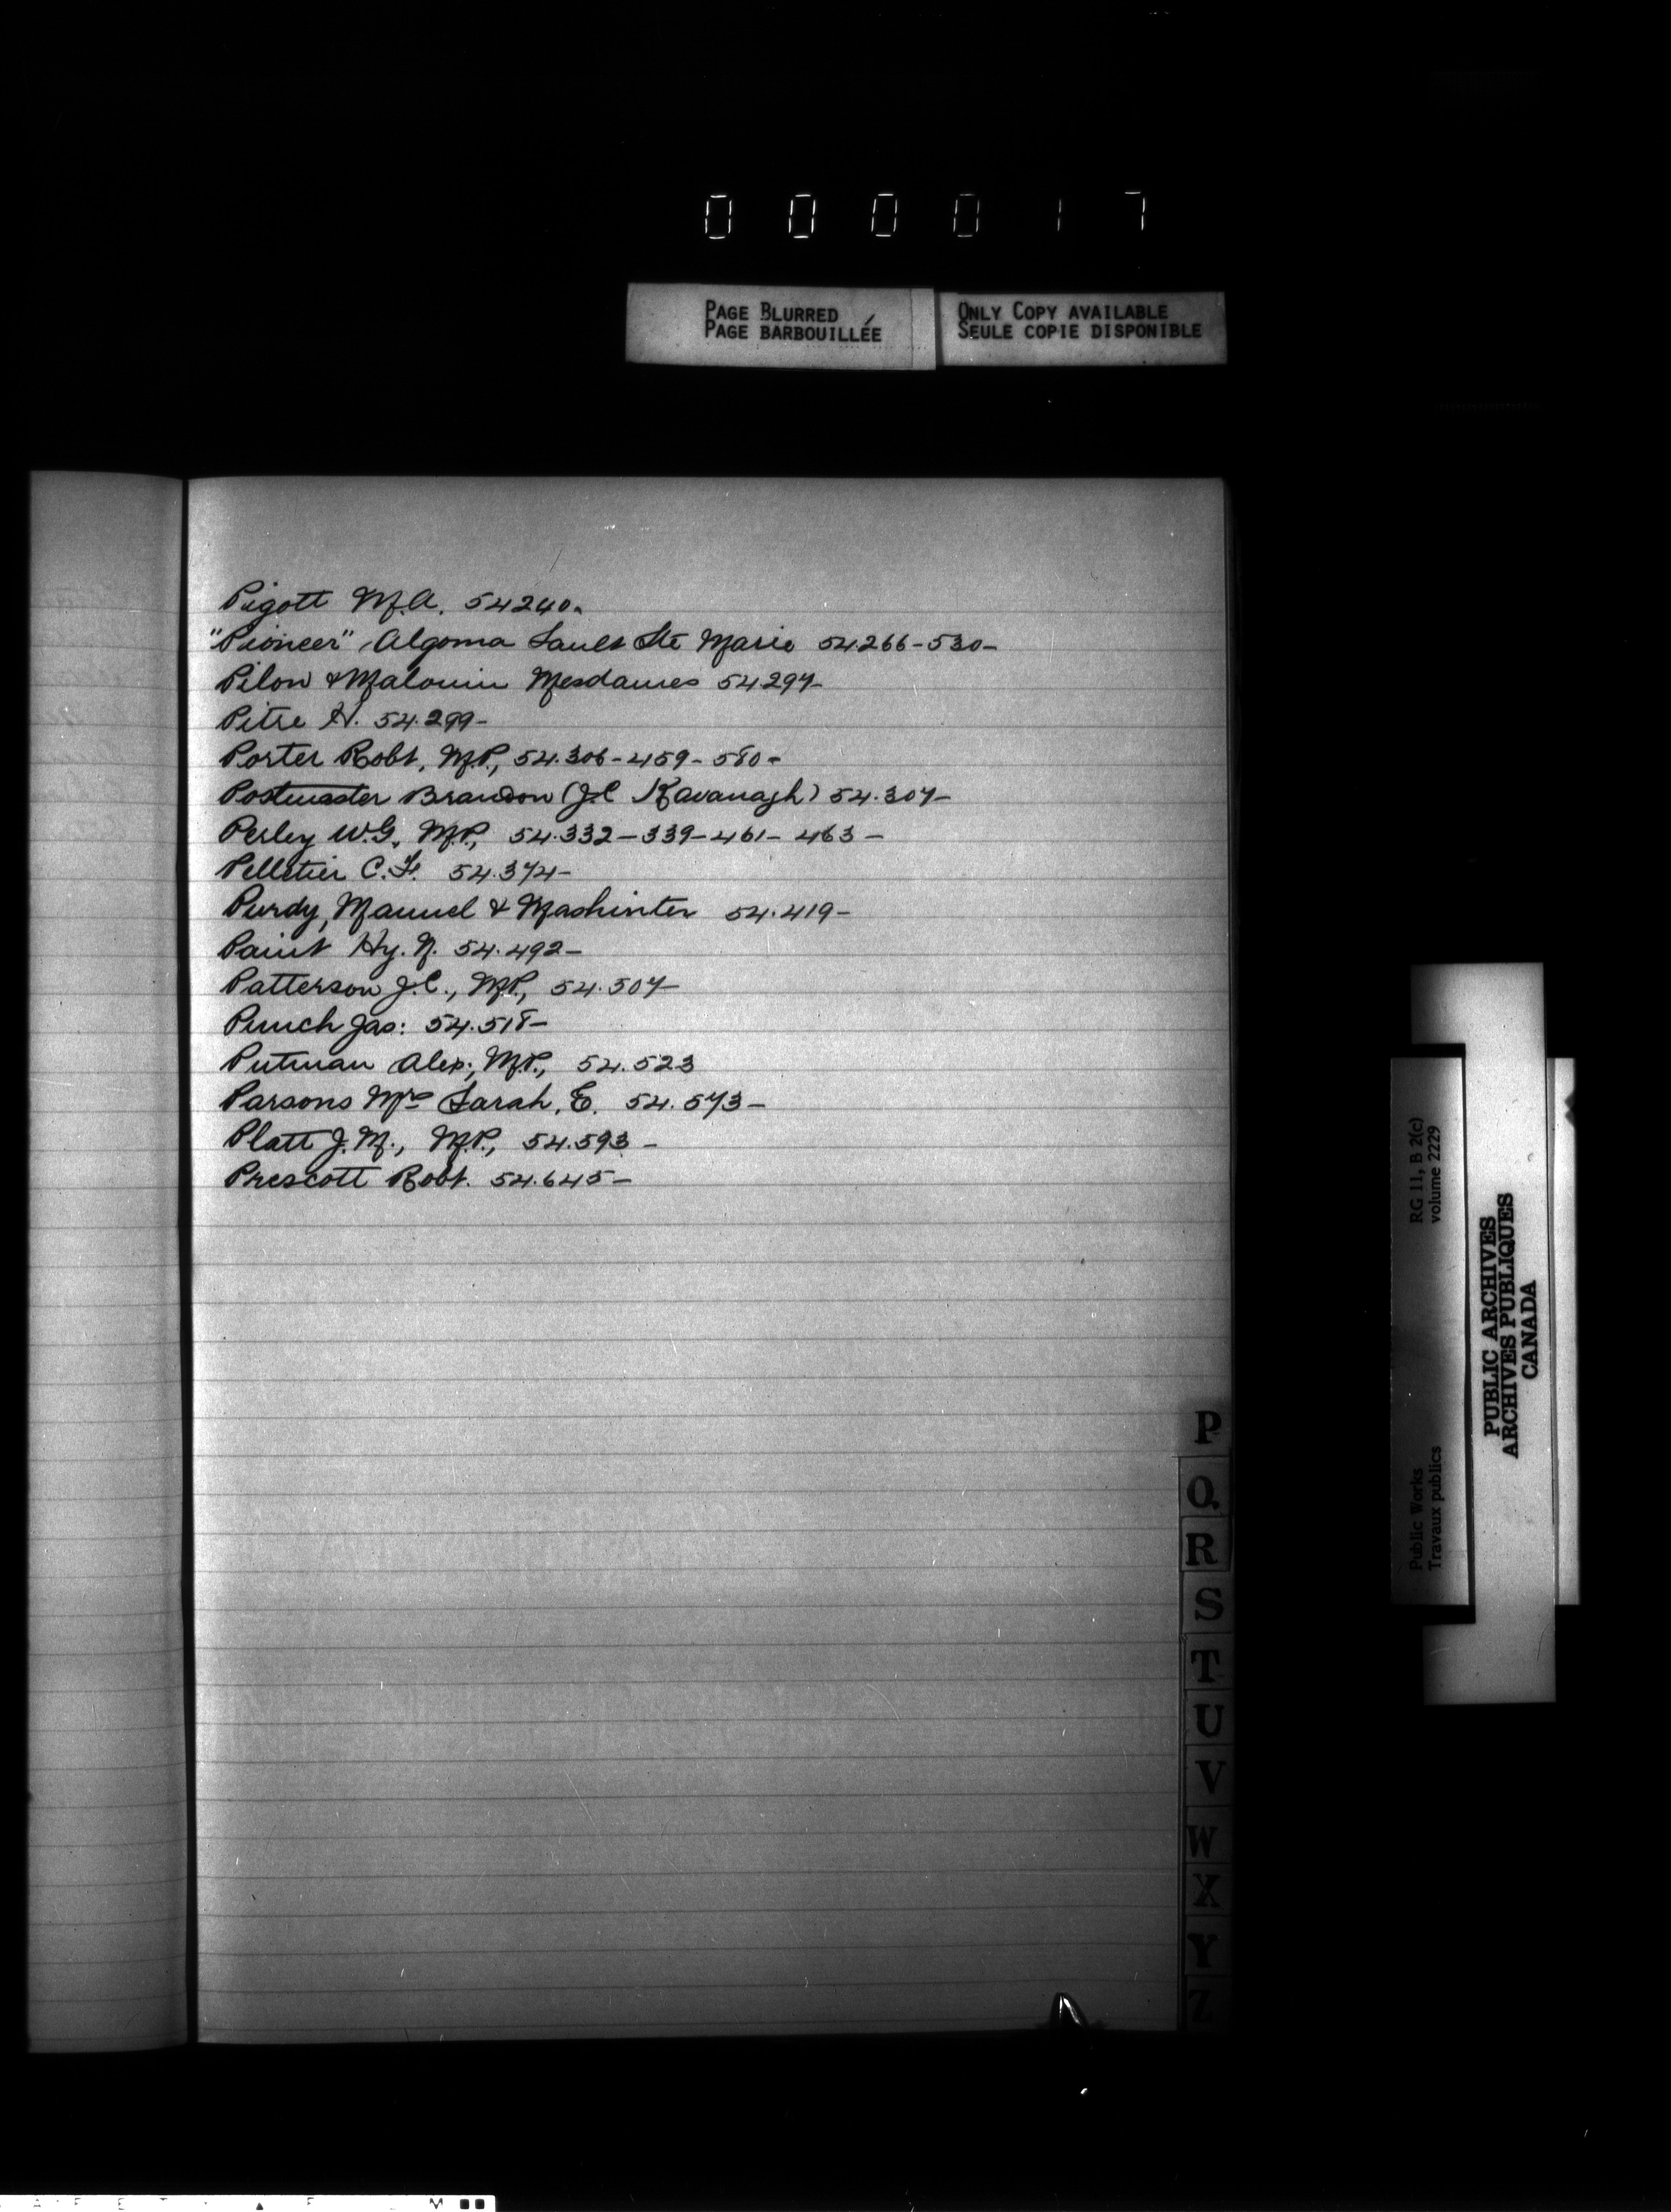 0 0 0 0 1 7
PAGE BLURRED
PAGE BARBOUILLÉE
ONLY COPY AVAILABLE
SEULE COPIE DISPONIBLE
Pigott M.A. 54240-
"Pioneer" Algoma Sault Ste Marie 54.266-530-
Pilon & Malouin Mesdames 54.297-
Pitre H. 54.299-
Porter Robt, M.P., 54.306-459-580-
Postmaster Brandon (J.C Kavanagh) 54.307-
Perley W.G, M.P., 54.332-339-461-463-
Pelletier C.F. 54.374-
Purdy, Mannel & Mashinter 54.419-
Paint Hy. N. 54.492-
Patterson J.C., M.P., 54.507-
Punch Jas: 54.518-
Putman Alex; M.P., 54.523
Parsons Mrs Sarah, E. 54.573-
Platt J.M., M.P., 54.593-
Prescott Robt. 54.645-
P
Q
R
S
T
U
V
W
X
Y
Z
RG 11, B 2(c)
volume 2229
Public Works
Travaux publics
PUBLIC ARCHIVES
ARCHIVES PUBLIQUES
CANADA